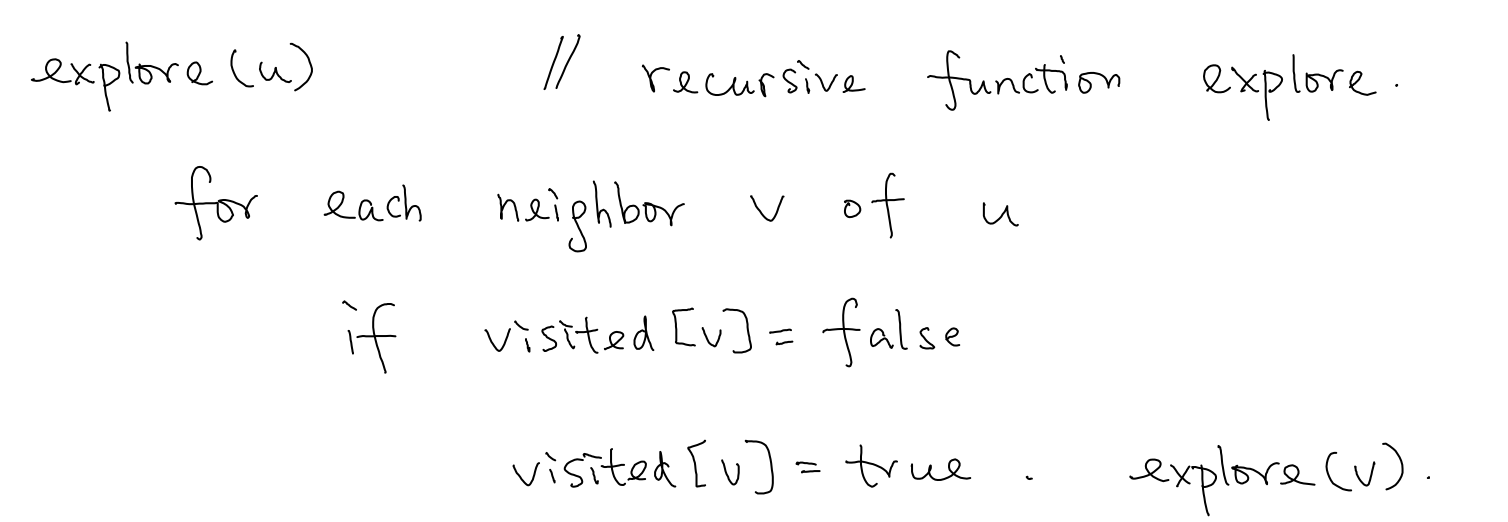 explore(u) // recursive function explore.
for each neighbor v of u
if visited[v] = false
visited[v] = true. explore(v).